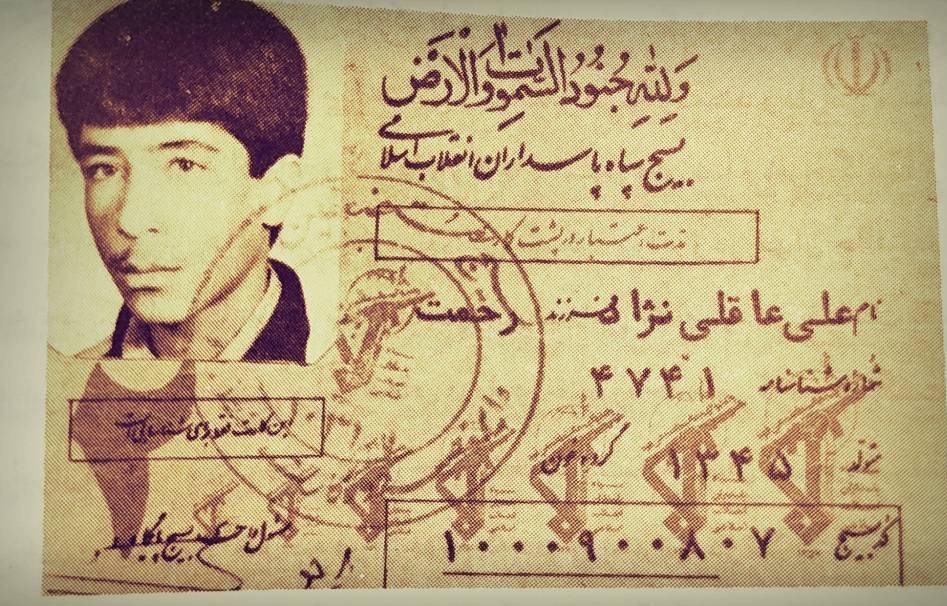 وَلِلّٰهِ جُنُودُ السَّمٰوَاتِ وَالْاَرْضِ
بسیج سپاه پاسداران انقلاب اسلامی
مدت اعتبار در پشت کارت
نام علی عاقلی نژاد فرزند رحمت
شماره شناسنامه ۴۷۴۱
متولد ۱۳۴۵ گروه خون
کد بسیج ۱۰۰۰۹۰۰۸۰۷
این کارت فقط برای شناسایی است
مسئول